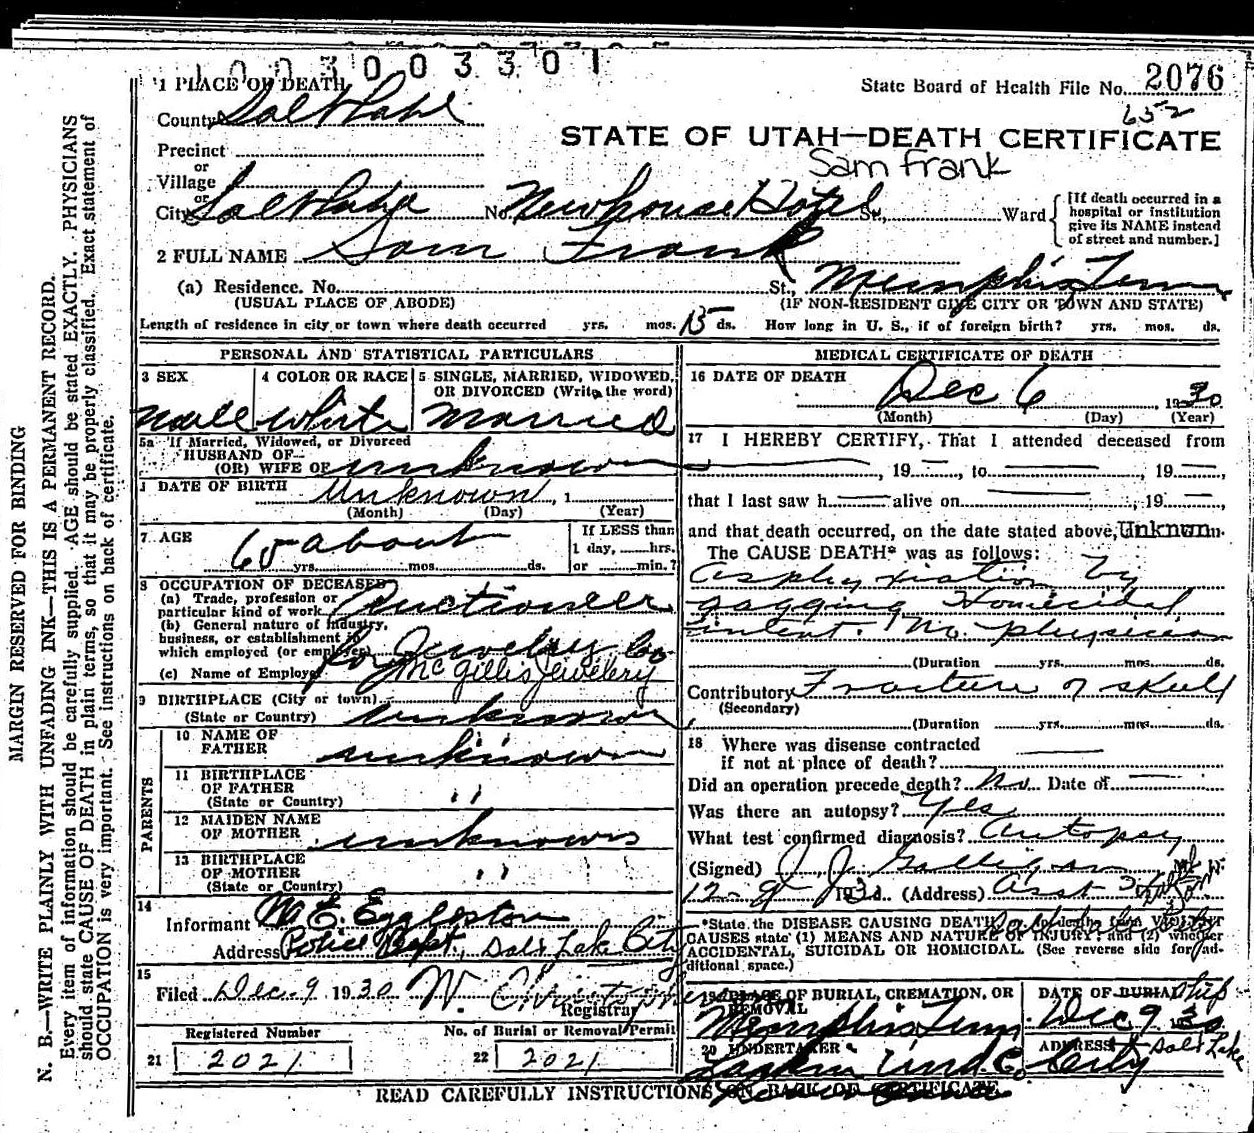 1003003301
1 PLACE OF DEATH
State Board of Health File No. 2076
652
County Salt Lake
STATE OF UTAH—DEATH CERTIFICATE
Precinct
Sam Frank
or
Village
or
City Salt Lake No. Newhouse Hotel St., Ward
[If death occurred in a
hospital or institution
give its NAME instead
of street and number.]
2 FULL NAME Sam Frank
(a) Residence. No. St., Memphis Tenn
(USUAL PLACE OF ABODE) (IF NON-RESIDENT GIVE CITY OR TOWN AND STATE)
Length of residence in city or town where death occurred yrs. mos. 15 ds. How long in U. S., if of foreign birth? yrs. mos. ds.
PERSONAL AND STATISTICAL PARTICULARS
3 SEX 4 COLOR OR RACE 5 SINGLE, MARRIED, WIDOWED,
OR DIVORCED (Write the word)
Male White Married
5a If Married, Widowed, or Divorced
HUSBAND OF
(OR) WIFE OF unknown
DATE OF BIRTH Unknown, 1
(Month) (Day) (Year)
7 AGE If LESS than
60 about 1 day, hrs.
yrs. mos. ds. or min.?
8 OCCUPATION OF DECEASED
(a) Trade, profession or
particular kind of work Auctioneer
(b) General nature of industry,
business, or establishment in
which employed (or employer) for Jewelry Co
(c) Name of Employer McGillis Jewelery
9 BIRTHPLACE (City or town)
(State or Country) unknown
PARENTS
10 NAME OF
FATHER unknown
11 BIRTHPLACE
OF FATHER
(State or Country) ''
12 MAIDEN NAME
OF MOTHER unknown
13 BIRTHPLACE
OF MOTHER
(State or Country) ''
14
Informant M. E. Eggleston
Address Police Dept, Salt Lake City
15
Filed Dec. 9 1930 W. Christopher
Registrar
Registered Number No. of Burial or Removal Permit
21 2021 22 2021
MEDICAL CERTIFICATE OF DEATH
16 DATE OF DEATH
Dec 6 1930
(Month) (Day) (Year)
17 I HEREBY CERTIFY, That I attended deceased from
, 19 , to , 19 ,
that I last saw h alive on , 19
and that death occurred, on the date stated above, Unknwn m.
The CAUSE DEATH* was as follows:
Asphyxiation by
gagging Homicidal
intent. No physician
(Duration yrs. mos. ds.
Contributory Fracture of skull
(Secondary)
(Duration yrs. mos. ds.
18 Where was disease contracted
if not at place of death?
Did an operation precede death? No Date of
Was there an autopsy? Yes
What test confirmed diagnosis? Autopsy
(Signed) J. J. Galligan
12-9 1930. (Address) Asst
*State the DISEASE CAUSING DEATH,
CAUSES state (1) MEANS AND NATURE OF INJURY; and (2) whether
ACCIDENTAL, SUICIDAL OR HOMICIDAL. (See reverse side for ad-
ditional space.)
19 PLACE OF BURIAL, CREMATION, OR
REMOVAL
DATE OF BURIAL Ship
Memphis Tenn. Dec 9 1930
20 UNDERTAKER ADDRESS Salt Lake
Larkin Und. Co City
READ CAREFULLY INSTRUCTIONS ON BACK OF CERTIFICATE
MARGIN RESERVED FOR BINDING
N. B.—WRITE PLAINLY WITH UNFADING INK—THIS IS A PERMANENT RECORD.
Every item of information should be carefully supplied. AGE should be stated EXACTLY. PHYSICIANS
should state CAUSE OF DEATH in plain terms, so that it may be properly classified. Exact statement of
OCCUPATION is very important. See instructions on back of certificate.